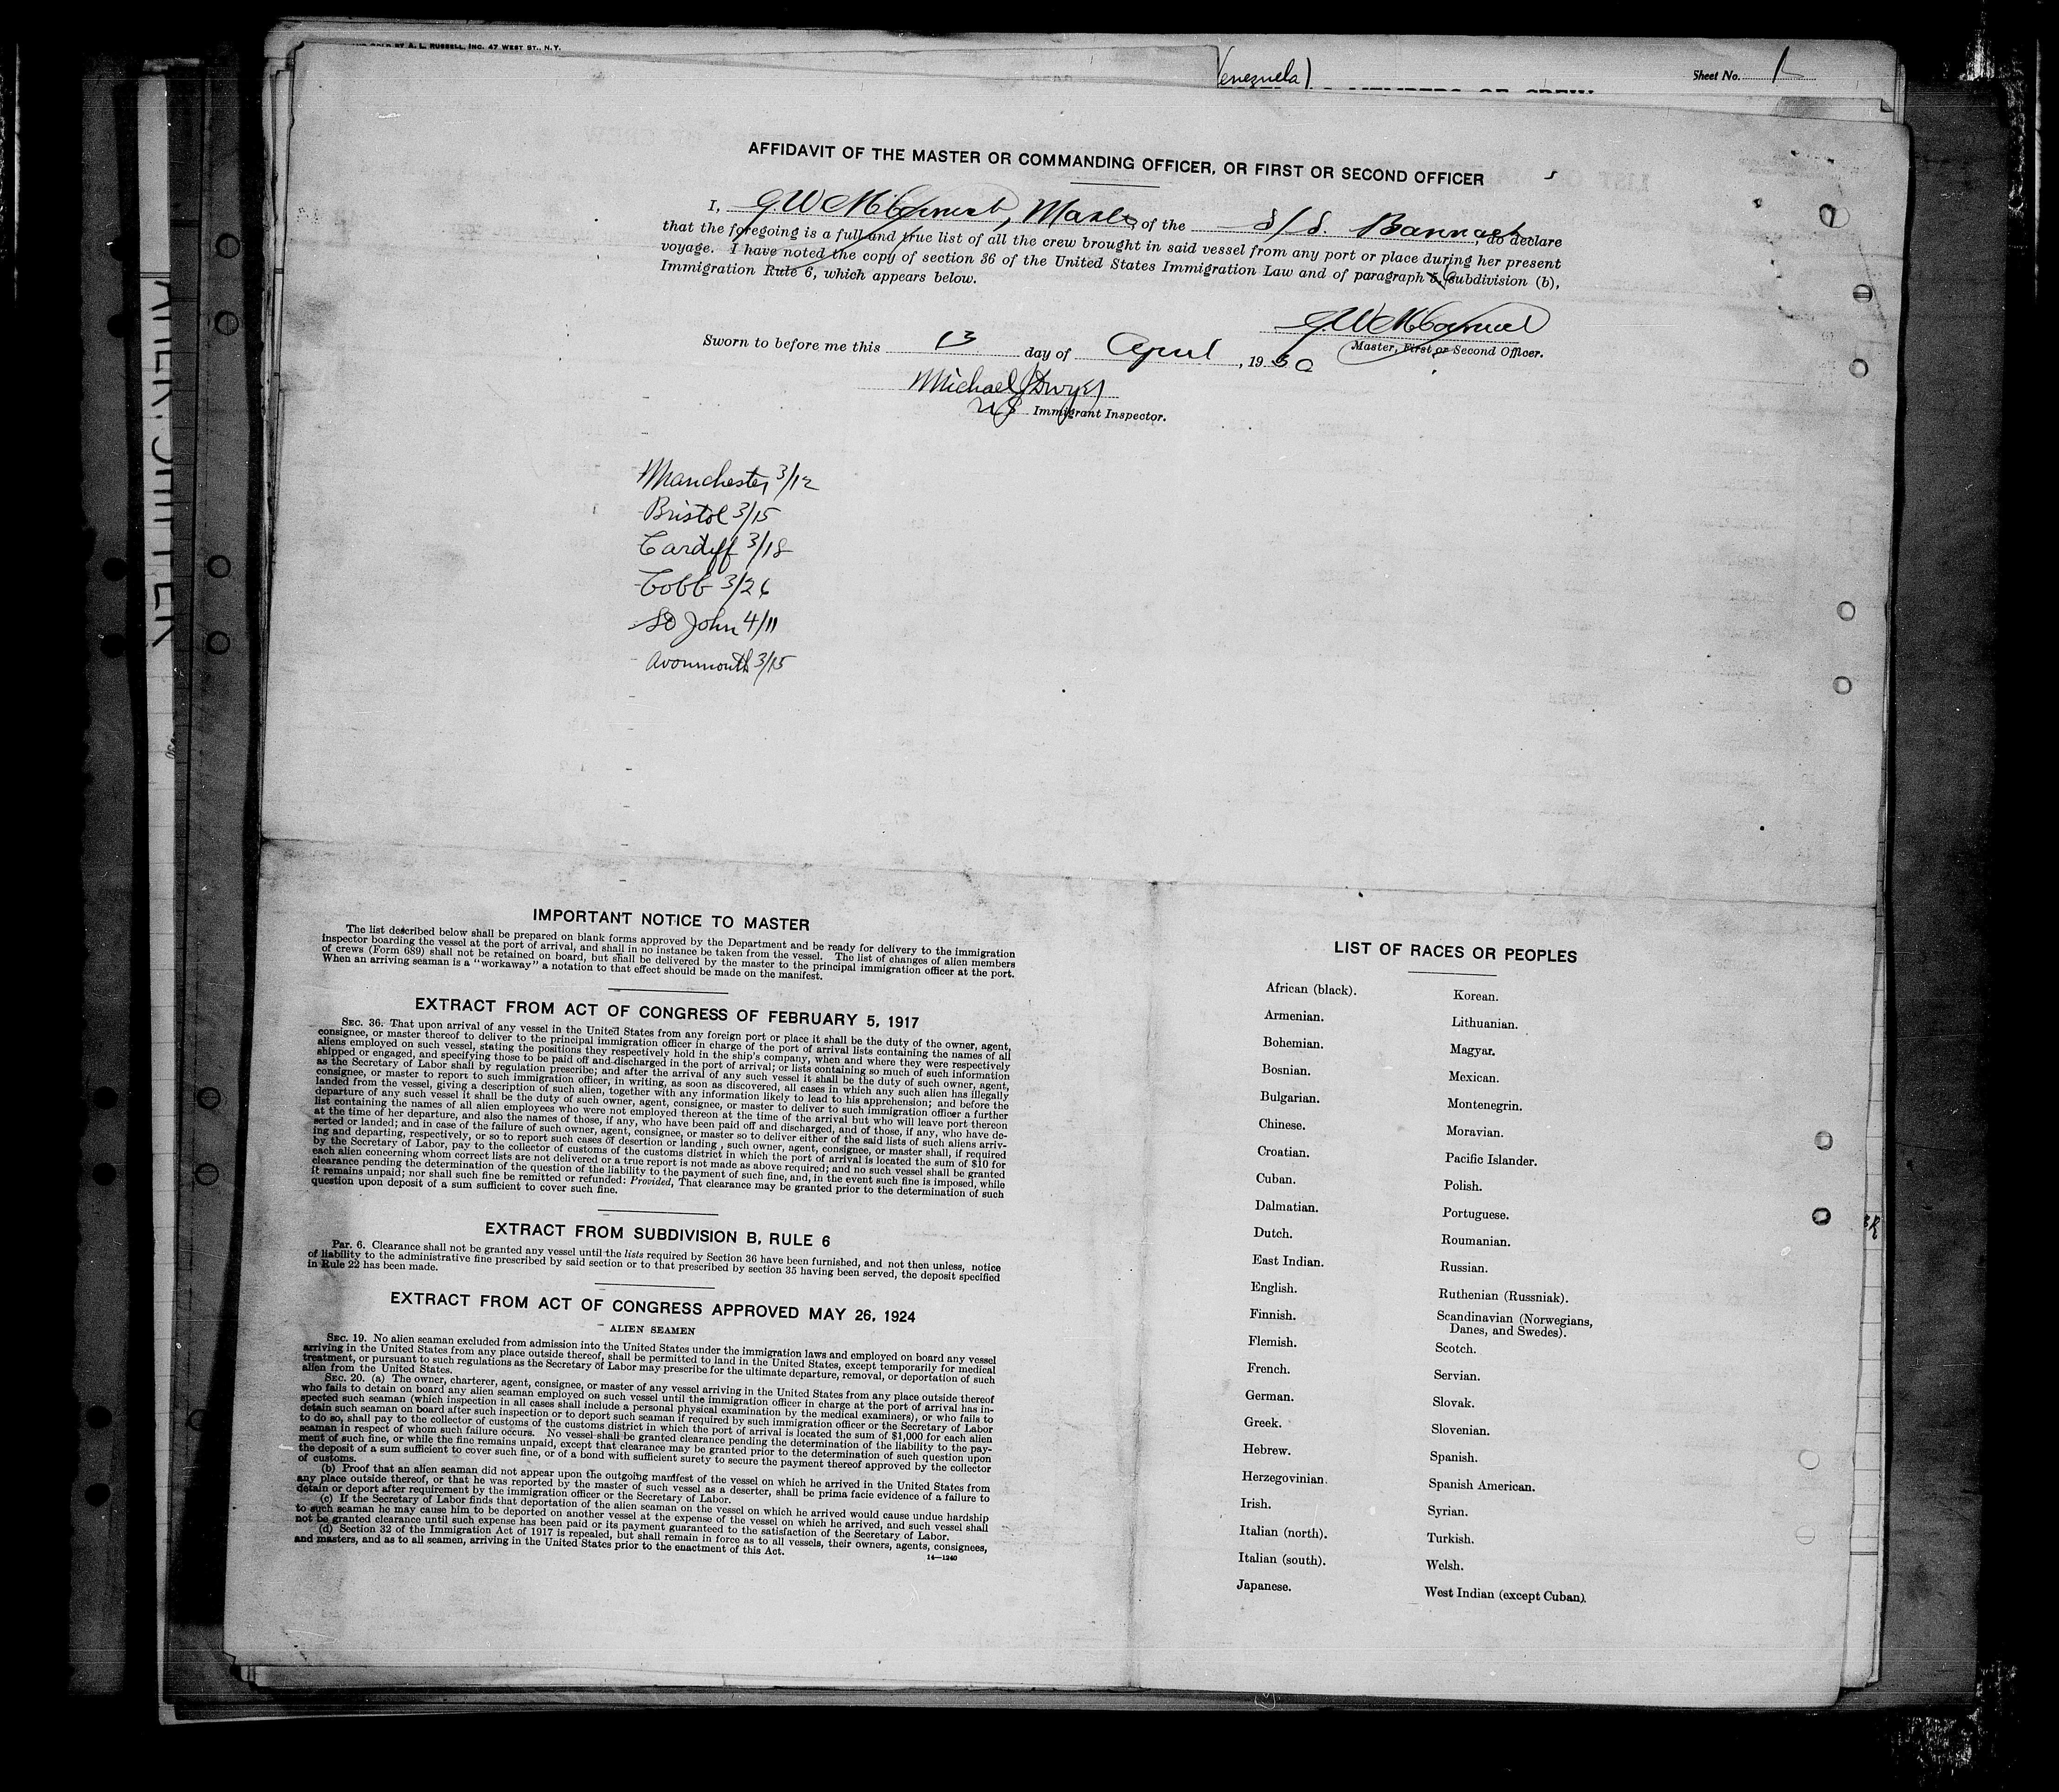 SOLD BY A. L. RUSSELL, INC. 47 WEST ST., N.Y.
Venezuela)
Sheet No. 1
MEMBERS OF CREW
AFFIDAVIT OF THE MASTER OR COMMANDING OFFICER, OR FIRST OR SECOND OFFICER
I, G W, Master of the S/S. Bannack, do declare
that the foregoing is a full and true list of all the crew brought in said vessel from any port or place during her present
voyage. I have noted the copy of section 36 of the United States Immigration Law and of paragraph 5, subdivision (b),
Immigration Rule 6, which appears below.
G W
Master, First or Second Officer.
Sworn to before me this 13 day of April, 1930
Michael J Dwyer
US Immigrant Inspector.
Manchester 3/12
Bristol 3/15
Cardiff 3/18
Cobh 3/26
St John 4/11
Avonmouth 3/15
IMPORTANT NOTICE TO MASTER
The list described below shall be prepared on blank forms approved by the Department and be ready for delivery to the immigration
inspector boarding the vessel at the port of arrival, and shall in no instance be taken from the vessel. The list of changes of alien members
of crews (Form 689) shall not be retained on board, but shall be delivered by the master to the principal immigration officer at the port.
When an arriving seaman is a "workaway" a notation to that effect should be made on the manifest.
EXTRACT FROM ACT OF CONGRESS OF FEBRUARY 5, 1917
SEC. 36. That upon arrival of any vessel in the United States from any foreign port or place it shall be the duty of the owner, agent,
consignee, or master thereof to deliver to the principal immigration officer in charge of the port of arrival lists containing the names of all
aliens employed on such vessel, stating the positions they respectively hold in the ship's company, when and where they were respectively
shipped or engaged, and specifying those to be paid off and discharged in the port of arrival; or lists containing so much of such information
as the Secretary of Labor shall by regulation prescribe; and after the arrival of any such vessel it shall be the duty of such owner, agent,
consignee, or master to report to such immigration officer, in writing, as soon as discovered, all cases in which any such alien has illegally
landed from the vessel, giving a description of such alien, together with any information likely to lead to his apprehension; and before the
departure of any such vessel it shall be the duty of such owner, agent, consignee, or master to deliver to such immigration officer a further
list containing the names of all alien employees who were not employed thereon at the time of the arrival but who will leave port thereon
at the time of her departure, and also the names of those, if any, who have been paid off and discharged, and of those, if any, who have de-
serted or landed; and in case of the failure of such owner, agent, consignee, or master so to deliver either of the said lists of such aliens arriv-
ing and departing, respectively, or so to report such cases of desertion or landing, such owner, agent, consignee, or master shall, if required
by the Secretary of Labor, pay to the collector of customs of the customs district in which the port of arrival is located the sum of $10 for
each alien concerning whom correct lists are not delivered or a true report is not made as above required; and no such vessel shall be granted
clearance pending the determination of the question of the liability to the payment of such fine, and, in the event such fine is imposed, while
it remains unpaid; nor shall such fine be remitted or refunded: Provided, That clearance may be granted prior to the determination of such
question upon deposit of a sum sufficient to cover such fine.
EXTRACT FROM SUBDIVISION B, RULE 6
Par. 6. Clearance shall not be granted any vessel until the lists required by Section 36 have been furnished, and not then unless, notice
of liability to the administrative fine prescribed by said section or to that prescribed by section 35 having been served, the deposit specified
in Rule 22 has been made.
EXTRACT FROM ACT OF CONGRESS APPROVED MAY 26, 1924
ALIEN SEAMEN
SEC. 19. No alien seaman excluded from admission into the United States under the immigration laws and employed on board any vessel
arriving in the United States from any place outside thereof, shall be permitted to land in the United States, except temporarily for medical
treatment, or pursuant to such regulations as the Secretary of Labor may prescribe for the ultimate departure, removal, or deportation of such
alien from the United States.
SEC. 20. (a) The owner, charterer, agent, consignee, or master of any vessel arriving in the United States from any place outside thereof
who fails to detain on board any alien seaman employed on such vessel until the immigration officer in charge at the port of arrival has in-
spected such seaman (which inspection in all cases shall include a personal physical examination by the medical examiners), or who fails to
detain such seaman on board after such inspection or to deport such seaman if required by such immigration officer or the Secretary of Labor
to do so, shall pay to the collector of customs of the customs district in which the port of arrival is located the sum of $1,000 for each alien
seaman in respect of whom such failure occurs. No vessel shall be granted clearance pending the determination of the liability to the pay-
ment of such fine, or while the fine remains unpaid, except that clearance may be granted prior to the determination of such question upon
the deposit of a sum sufficient to cover such fine, or of a bond with sufficient surety to secure the payment thereof approved by the collector
of customs.
(b) Proof that an alien seaman did not appear upon the outgoing manifest of the vessel on which he arrived in the United States from
any place outside thereof, or that he was reported by the master of such vessel as a deserter, shall be prima facie evidence of a failure to
detain or deport after requirement by the immigration officer or the Secretary of Labor.
(c) If the Secretary of Labor finds that deportation of the alien seaman on the vessel on which he arrived would cause undue hardship
to such seaman he may cause him to be deported on another vessel at the expense of the vessel on which he arrived, and such vessel shall
not be granted clearance until such expense has been paid or its payment guaranteed to the satisfaction of the Secretary of Labor.
(d) Section 32 of the Immigration Act of 1917 is repealed, but shall remain in force as to all vessels, their owners, agents, consignees,
and masters, and as to all seamen, arriving in the United States prior to the enactment of this Act.
14—1240
LIST OF RACES OR PEOPLES
African (black).
Armenian.
Bohemian.
Bosnian.
Bulgarian.
Chinese.
Croatian.
Cuban.
Dalmatian.
Dutch.
East Indian.
English.
Finnish.
Flemish.
French.
German.
Greek.
Hebrew.
Herzegovinian.
Irish.
Italian (north).
Italian (south).
Japanese.
Korean.
Lithuanian.
Magyar.
Mexican.
Montenegrin.
Moravian.
Pacific Islander.
Polish.
Portuguese.
Roumanian.
Russian.
Ruthenian (Russniak).
Scandinavian (Norwegians,
Danes, and Swedes).
Scotch.
Servian.
Slovak.
Slovenian.
Spanish.
Spanish American.
Syrian.
Turkish.
Welsh.
West Indian (except Cuban).